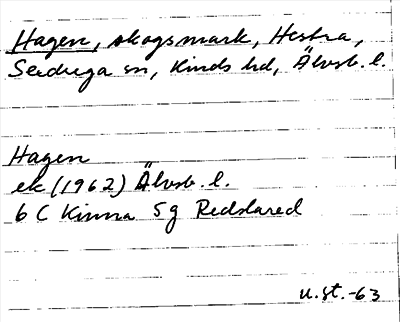 Hagen, skogsmark, Hestra,
sn, Kinds hd, Älvsb. l.
Hagen
ek (1962) Älvsb. l.
6 C Kinna 5g Redslared
u.st.-63